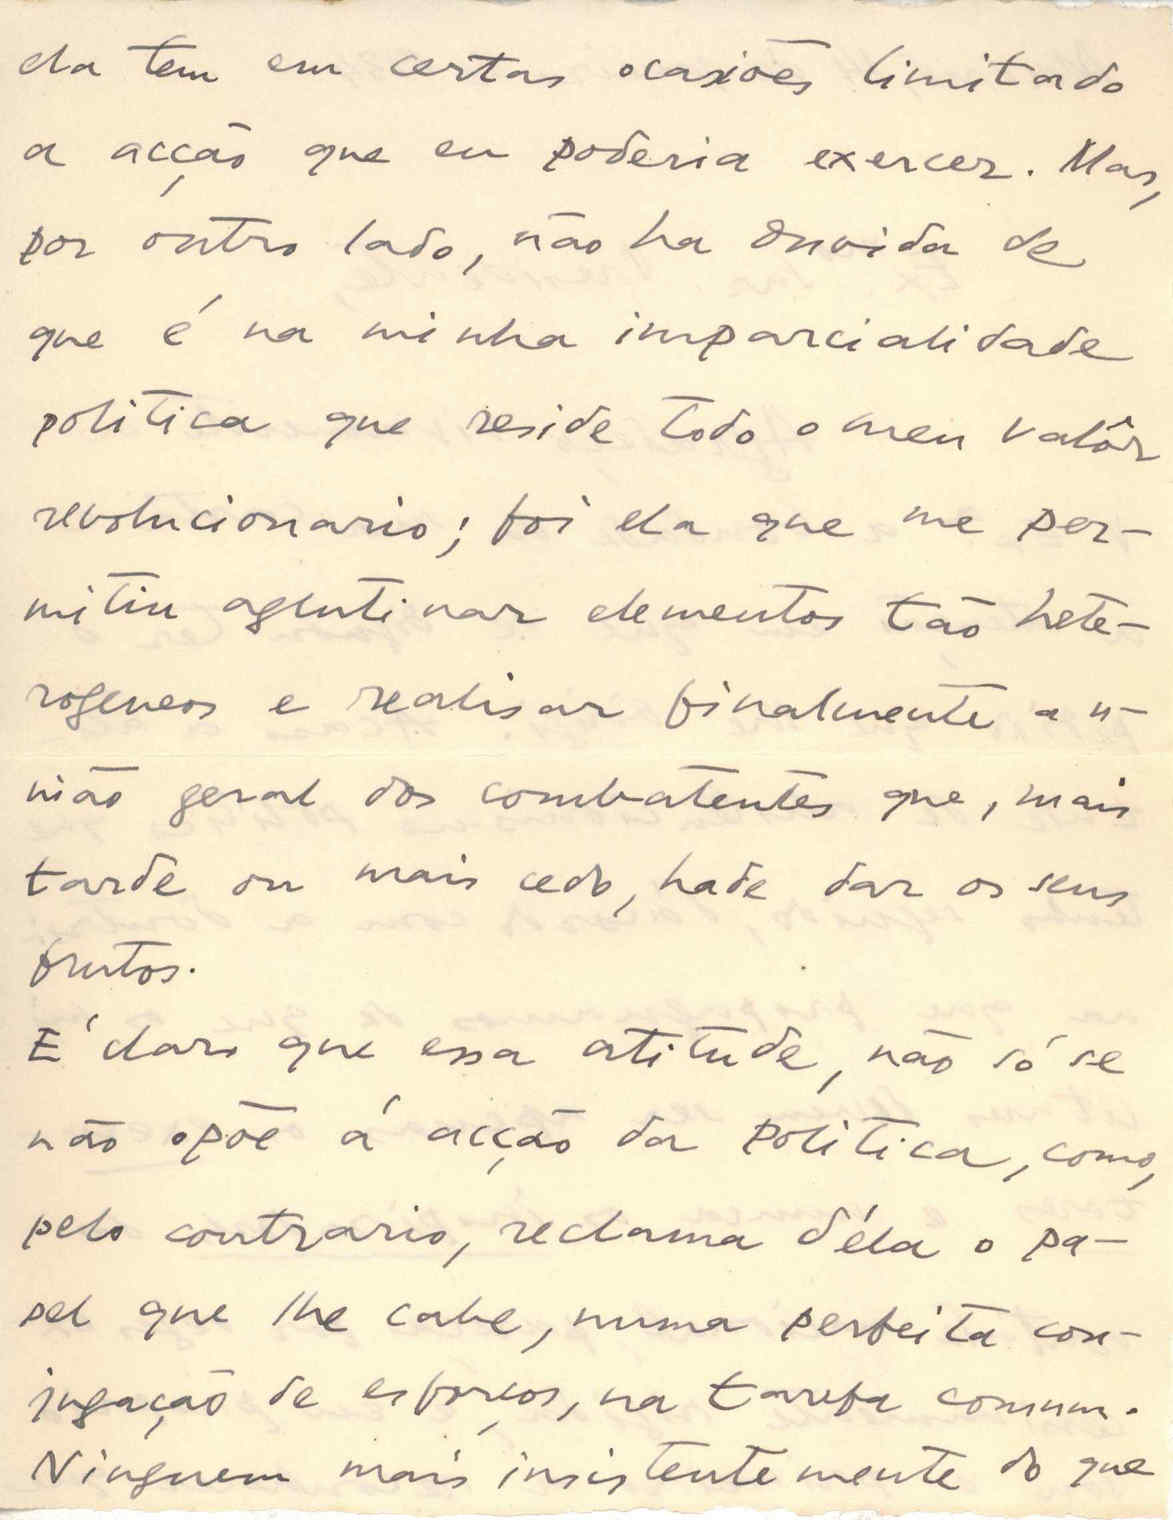 ela tem em certas ocasiões limitado
a acção que eu poderia exercer. Mas,
por outro lado, não ha duvida de
que é na minha imparcialidade
politica que reside todo o meu valôr
revolucionario; foi ela que me per-
mitiu aglutinar elementos tão hete-
rogeneos e realisar finalmente a u-
nião geral dos combatentes que, mais
tarde ou mais cedo, hade dar os seus
frutos.
E' claro que essa atitude, não só se
não opõe á acção da politica, como,
pelo contrario, reclama d'éla o pa-
pel que lhe cabe, numa perfeita con-
jugação de esforços, na tarefa comum.
Ninguem mais insistentemente do que